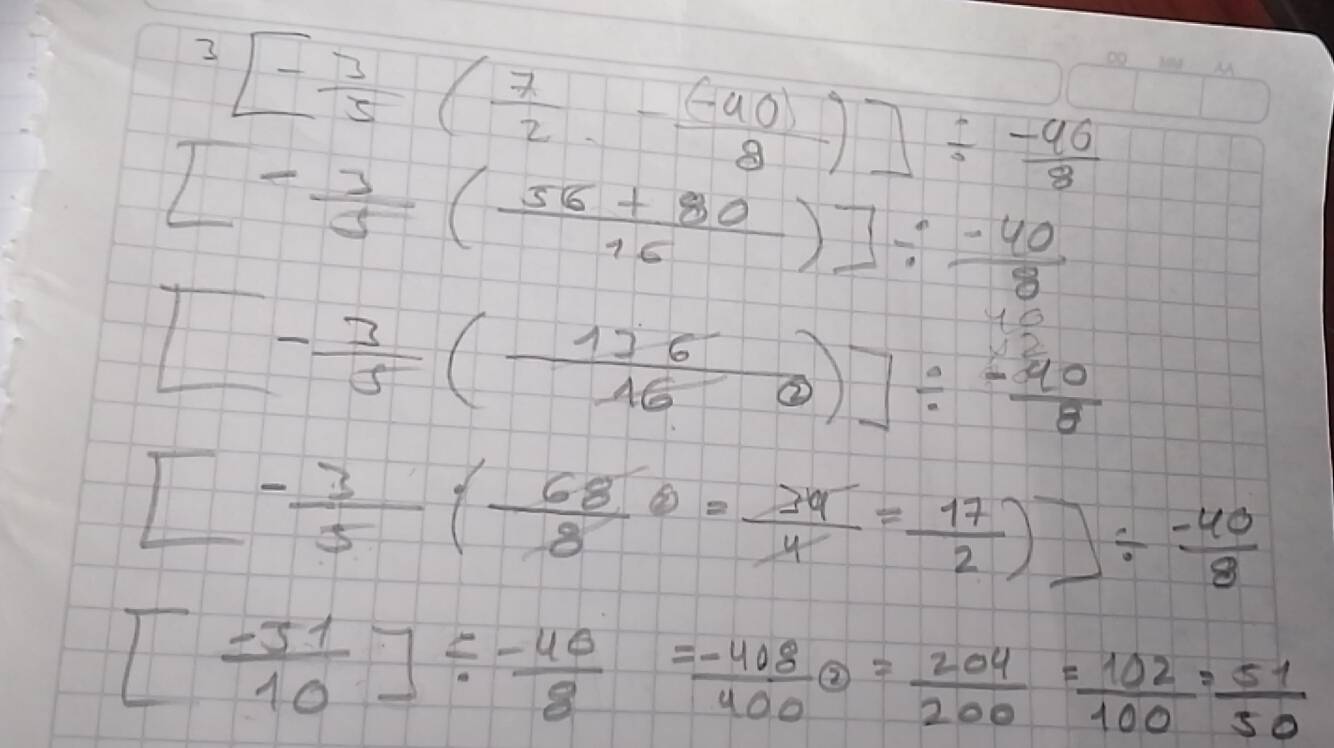 3 [ - 3/5 ( 7/2 - (-40)/8 ) ] ÷ -40/8
[ - 3/5 ( 56 + 80 / 16 ) ] ÷ -40/8
[ - 3/5 ( 136/16 ② ) ] ÷ -40/8
[ - 3/5 ( 68/8 ② = 34/4 = 17/2 ) ] ÷ -40/8
[ -51/10 ] ÷ -40/8 = -408/400 ② = 204/200 = 102/100 = 51/50